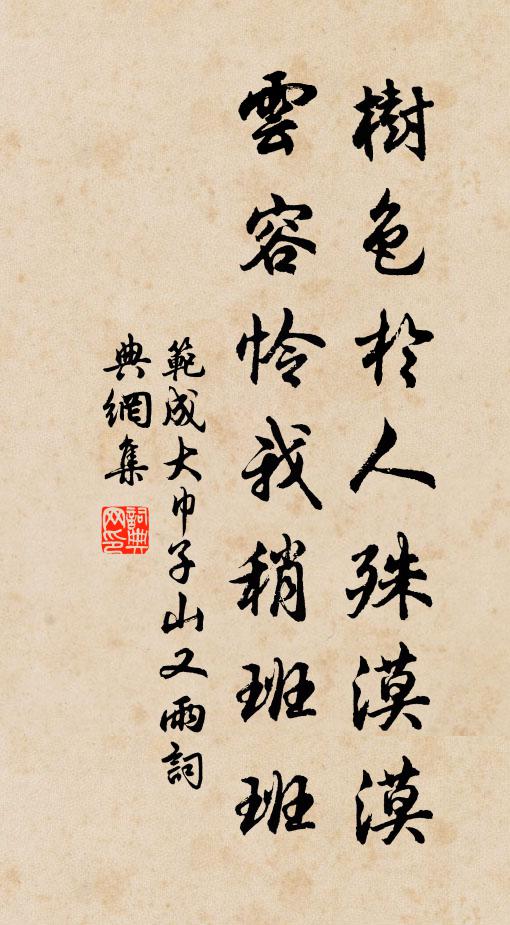 樹色於人殊漠漠
雲容怜我稍班班
範成大巾子山又雨詞
典網集
詞典網印